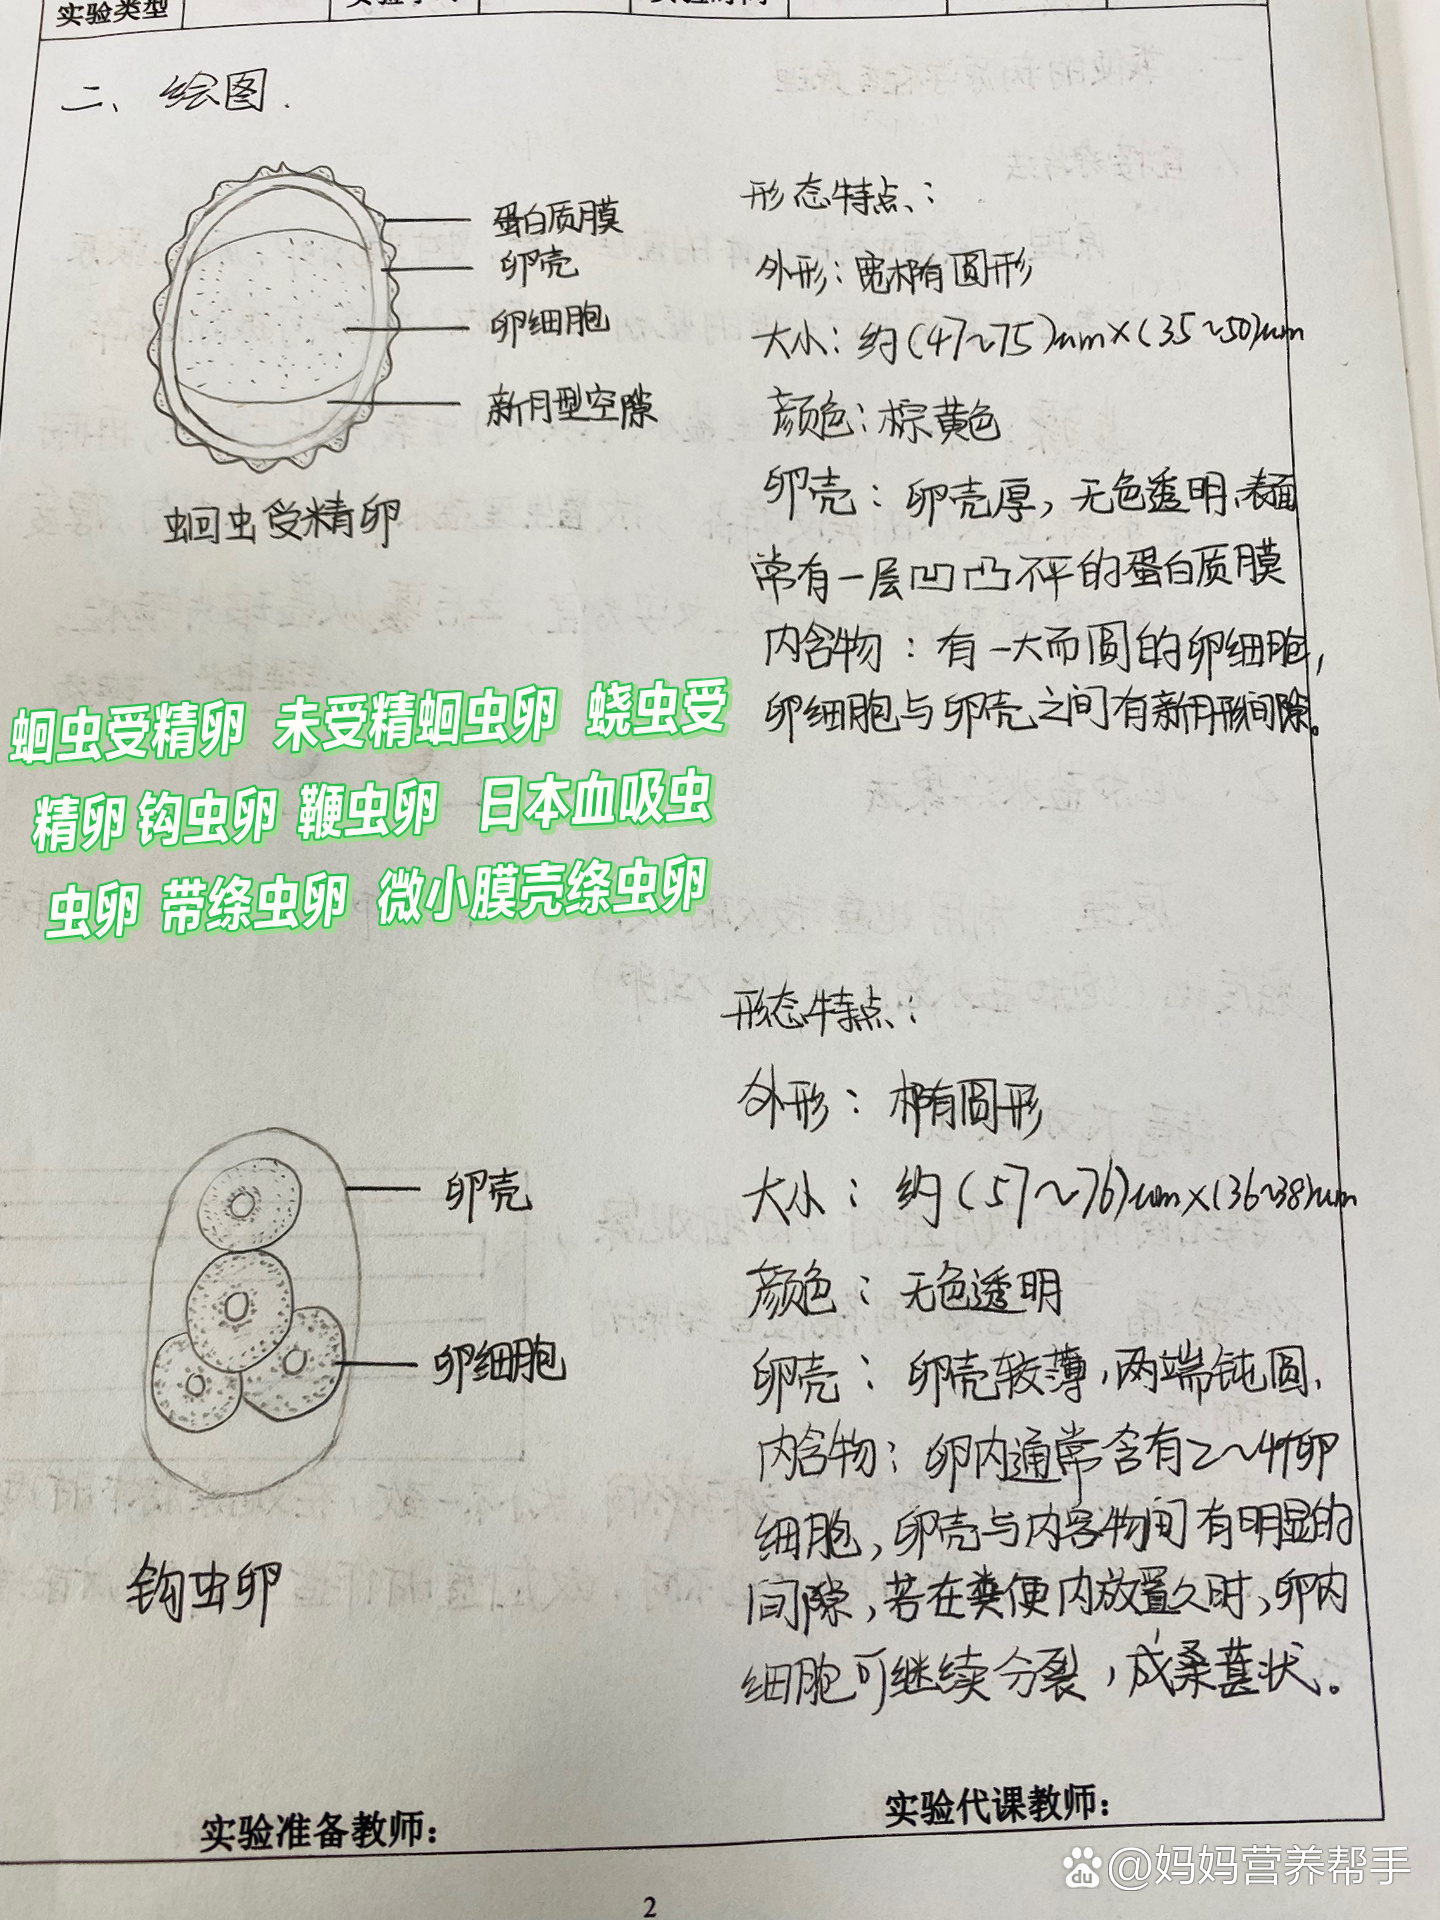 实验类型
二、绘图.
蛋白质膜
卵壳
卵细胞
新月型空隙
蛔虫受精卵
形态特点:
外形:宽椭圆形
大小:约(47~75)um×(35~50)um
颜色:棕黄色
卵壳:卵壳厚,无色透明,表面
常有一层凹凸不平的蛋白质膜
内含物:有一大而圆的卵细胞,
卵细胞与卵壳之间有新月形间隙。
蛔虫受精卵 未受精蛔虫卵 蛲虫受
精卵 钩虫卵 鞭虫卵 日本血吸虫
虫卵 带绦虫卵 微小膜壳绦虫卵
卵壳
卵细胞
钩虫卵
形态特点:
外形:椭圆形
大小:约(57~76)um×(36~38)um
颜色:无色透明
卵壳:卵壳较薄,两端钝圆,
内含物:卵内通常含有2~4个卵
细胞,卵壳与内容物间有明显的
间隙,若在粪便内放置久时,卵内
细胞可继续分裂,成桑葚状。
实验准备教师:
实验代课教师:
2
Bai du @妈妈营养帮手